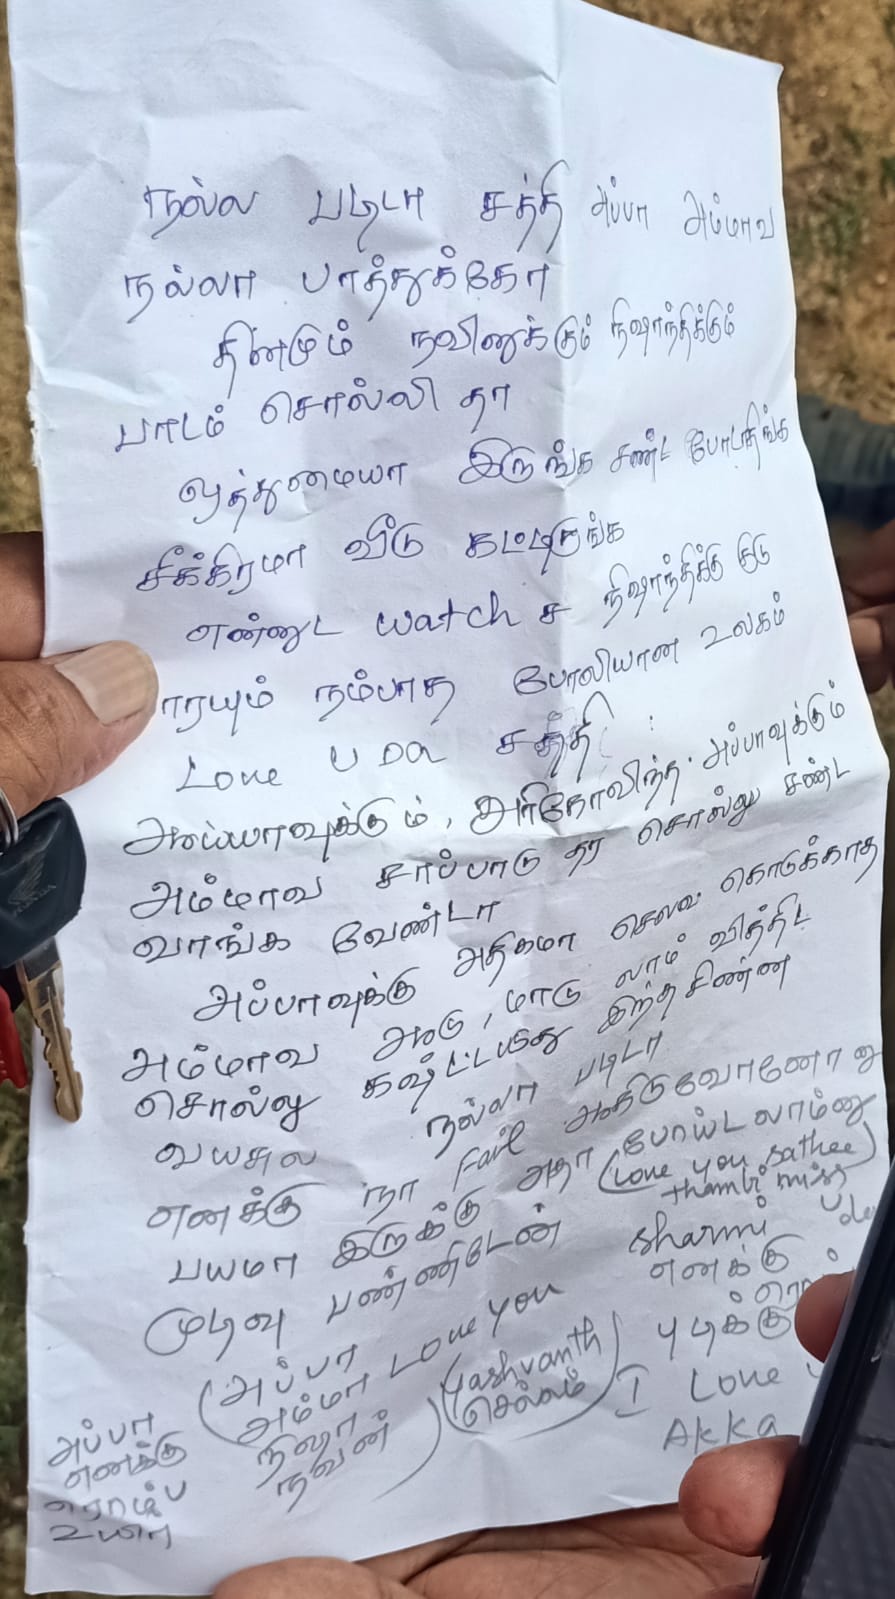 நல்ல படிடா சத்தி அப்பா அம்மாவ
நல்லா பாத்துக்கோ
தினமும் நவினுக்கும் நிஷாந்திக்கும்
பாடம் சொல்லி தா
ஒத்துமையா இருங்க சண்ட போடாதிங்க
சீக்கிரமா வீடு கட்டிடுங்க
என்னுட watch ச நிஷாந்திக்கு குடு
ாரயும் நம்பாத போலியான உலகம்
Love U Da சத்தி
அய்யாவுக்கும், அரிகோவிந்த அப்பாவுக்கும்
அம்மாவ சாப்பாடு தர சொல்லு சண்ட
வாங்க வேண்டா
அப்பாவுக்கு அதிகமா செலவ கொடுக்காத
அம்மாவ ஆடு, மாடு லாம் வித்திட
சொல்லு கஷ்ட்டபடுது இந்த சின்ன
வயசுல நல்லா படிடா
எனக்கு நா Fail ஆகிடுவோனோ னு
பயமா இருக்கு அதா போய்டலாம்னு
முடிவு பண்ணிடேன்
(Love you sathee)
thambi miss
(அப்பா
அம்மா Love you
நிஷா
நவன்)
(Yashvanth
செல்லம்)
Sharmi
எனக்கு
புடிக்கு
I Love
Akka
அப்பா
எனக்கு